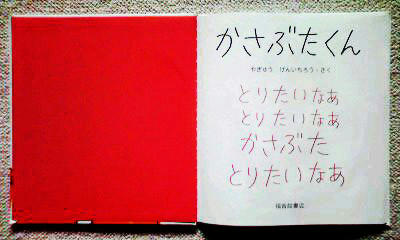 かさぶたくん
やぎゅう げんいちろう・さく
とりたいなぁ
とりたいなぁ
かさぶた
とりたいなぁ
福音館書店